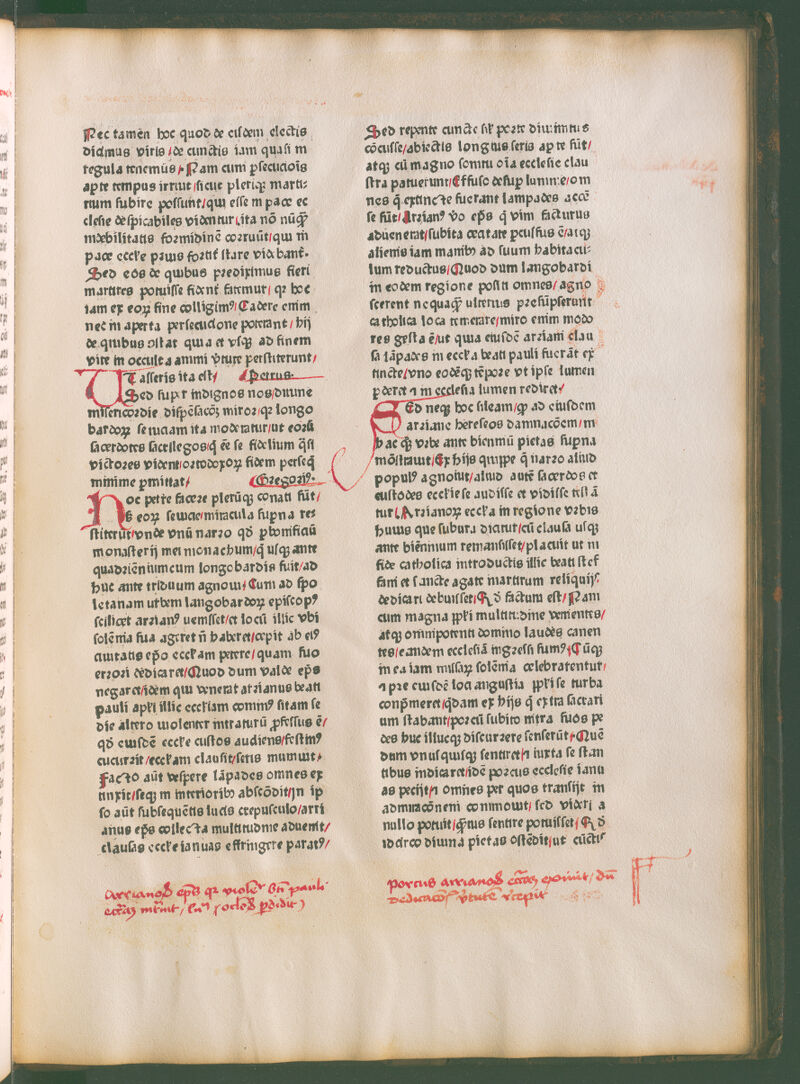 Nec tamen hoc quod de eisdem electis
diximus viris / de cunctis iam quasi in
regula tenemus / Nam cum ꝑsecucōis
aꝑte tempus irruit / sicut pleriqꝫ marti-
rium subire possunt / qui esse in pace ec
clesie despicabiles videntur / ita nō nūqͣꝫ
in debilitatis formidinē corruūt / qui in
pace eccl'ie prius fortit' stare videbant'.
Sed eos de quibus prediximus fieri
martires potuisse fident' fatemur / qꝛ hoc
iam ex eoꝝ fine colligimꝰ / Cadere enim
nec in aperta persecucione poterant / hij
de quibus ꝯstat quia et vsqꝫ ad finem
vite in occulta animi v'tute perstiterunt /
UT asseris ita est / Petrus.
Sed suꝑ indignos nos / diuine
misericordie dispēsacōꝫ miror / qꝛ longo
bardoꝝ seuiciam ita moderatur / ut eorū
sacerdotes sacrilegos / q̇ eē se fidelium q̄si
victores vident / ortodoxoꝝ fidem perseq̇
minime ꝑmittat / Gregoriꝰ.
HOc petre facere plerūqꝫ conati sūt /
sꝫ eoꝝ seuicie / miracula suꝑna res
stiterūt / vnde vnū narro qd' ꝑ bonifaciū
monasterij mei monachum / q̇ usqꝫ ante
quadriēnium cum longobardis fuit / ad
huc ante triduum agnoui / Cum ad spo
letanam urbem langobardoꝝ episcopꝰ
scilicet arrianꝰ venisset / et locū illic vbi
solēnia sua ageret n̄ haberet / cepit ab eiꝰ
ciuitatis ep̄o eccl'iam petere / quam suo
errori dedicaret / Quod dum valde ep̄s
negaret / idem qui venerat arrianus beati
pauli apl'i illic eccl'iam commꝰ sitam se
die altero uiolenter intraturū ꝓfessus ē /
qd' eiusdē eccl'ie custos audiens / festinꝰ
cucurrit / eccl'iam clausit / seris muniuit /
Facto aūt vespere lāpades omnes ex
tinxit / seqꝫ in interioribꝰ abscōdit / In ip
so aūt subsequētis lucis crepusculo / arri
anus ep̄s collecta multitudine aduenit /
clausas eccl'ie ianuas effringere paratꝰ /
Arrianoꝝ ep̄s qꝛ violēt' bt̄i pauli
eccl'iaꝫ intrauit / lumē oculoꝝ ꝑdidit
Sed repente cuncte sil' porte diuinitus
cōcusse / abiectis longius seris aꝑte sūt /
atqꝫ cū magno sonitu oīa ecclesie clau
stra patuerunt / Effuso desuꝑ lumine / om
nes q̄ extincte fuerant lampades accē
se sūt / Arrianꝰ v̊o ep̄s q̇ vim facturus
aduenerat / subita cecitate ꝑcussus ē / atqꝫ
alienis iam manibꝰ ad suum habitacu-
lum reductus / Quod dum langobardi
in eodem regione positi omnes / agno
scerent neqͣquāꝫ ulterius presūpserunt
catholica loca temerare / miro enim modo
res gesta ē / ut quia eiusdē arriani clau
sa lāpades in eccl'ia beati pauli fuerāt ex
tincte / vno eodēqꝫ tēpore vt ipse lumen
ꝑderet ⁊ in ecclesia lumen rediret /
SEd neqꝫ hoc sileam / qd' ad eiusdem
arriane hereseos damnacōem / in
hac qͦꝫ vrbe ante bienniū pietas suꝑna
mōstrauit / Ex hijs quippe q̄ narro aliud
populꝰ agnouit / aliud autē sacerdos et
custodes ecclesie audisse et vidisse testā
tur / Arrianoꝝ eccl'ia in regione vrbis
huius que subura dicitur / cū clausa usqꝫ
ante biēnnium remansisset / placuit ut in
fide catholica introductis illic beati stef
fani et sancte agate martirum reliquijs
dedicari debuisset / Qd' factum est / Nam
cum magna ppl'i multitudine venientes /
atqꝫ omnipotenti domino laudes canen
tes / eandem ecclesiā ingressi sumꝰ / Cūqꝫ
in ea iam missaꝝ solēnia celebrarentur /
⁊ pre eiusdē loci angustia ppl'i se turba
conp̄meret / qͥdam ex hijs q̇ extra sacrari
um stabant / porcū subito intra suos pe
des huc illucqꝫ discurrere senserūt / Quē
dum vnusquisqꝫ sentiret / ⁊ iuxta se stan
tibus indicaret / idē porcus ecclesie ianu
as pecijt / ⁊ omnes per quos transijt in
admiracōnem commouit / sed videri a
nullo potuit / qͣuis sentire potuisset / Qd'
idcirco diuina pietas ostēdit / ut cūctis
porcus arrianoꝝ eccl'iaꝫ exiuit / dū
dedicacōis v'tutē recepit